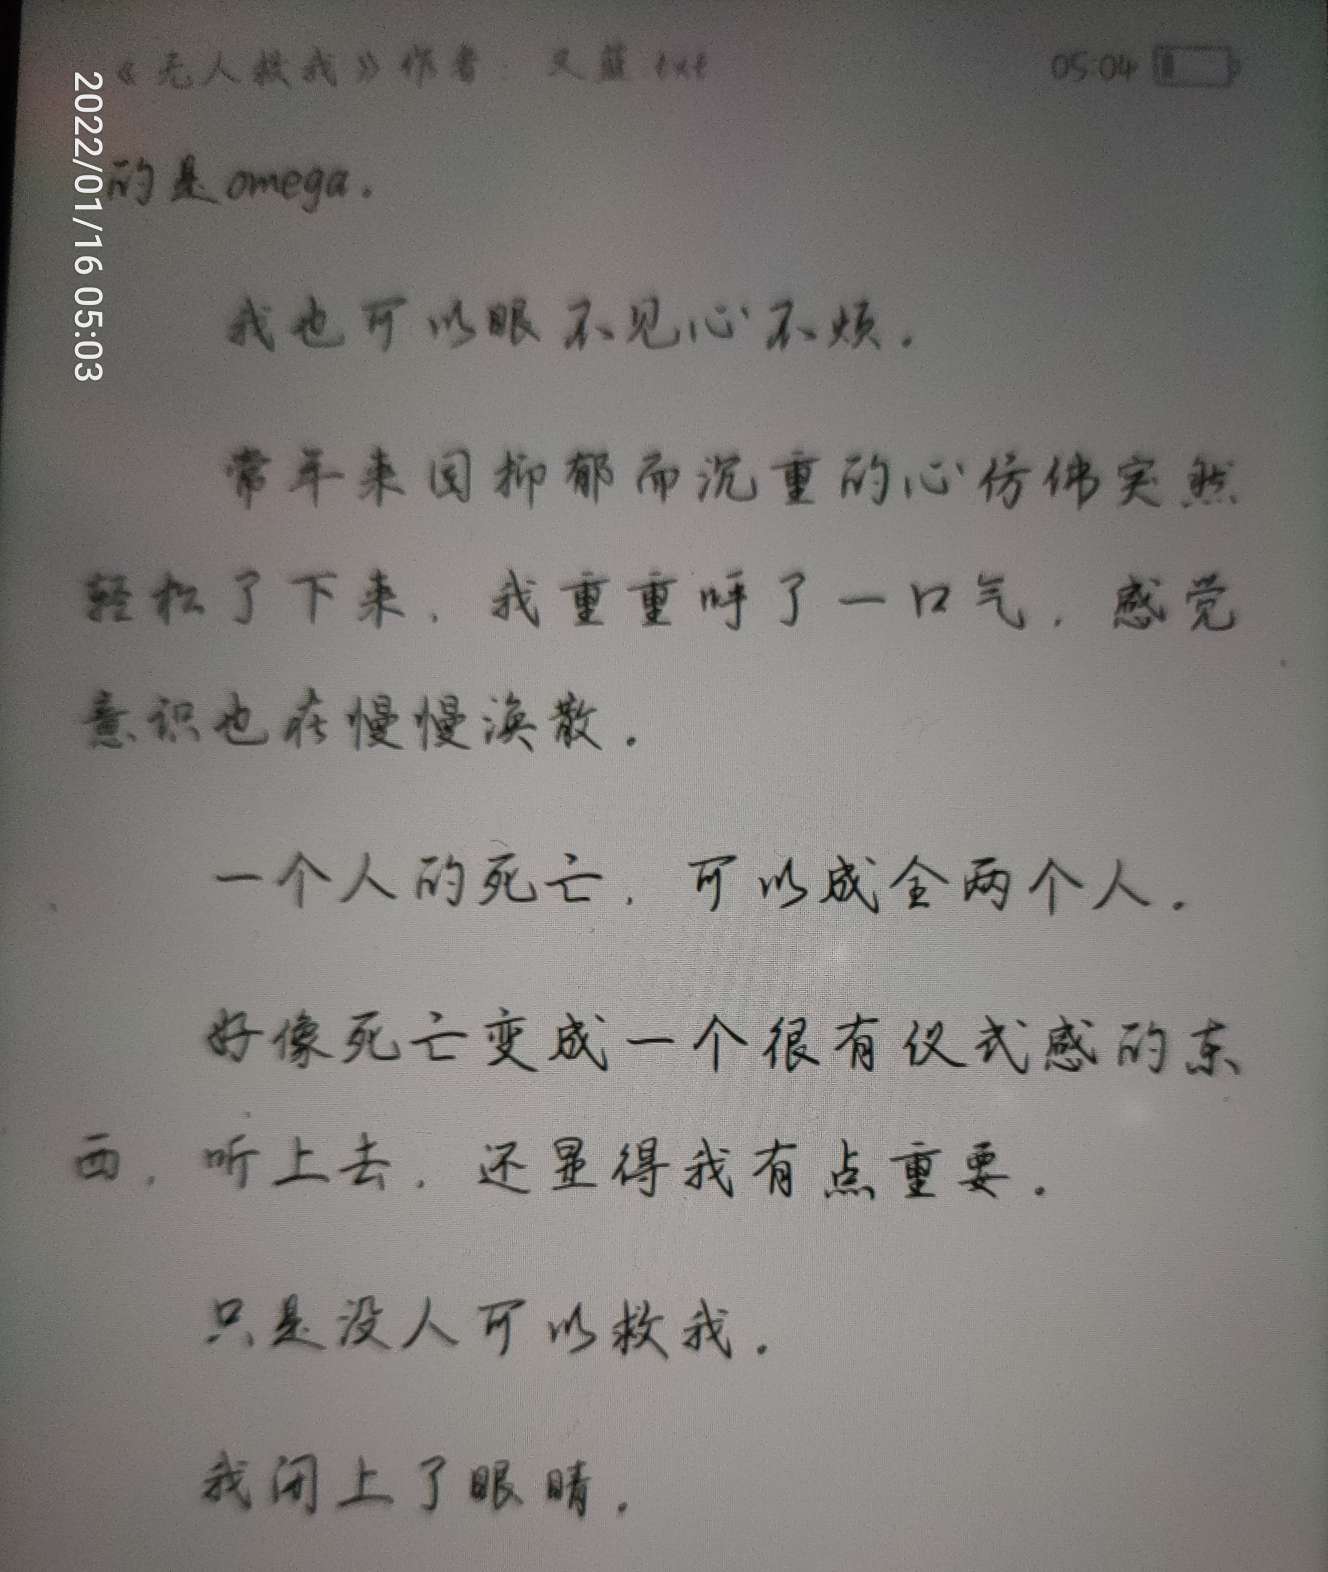 《无人救我》作者：又蓝.txt 05:04
2022/01/16 05:03
的是omega.
我也可以眼不见心不烦.
常年来因抑郁而沉重的心仿佛突然
轻松了下来，我重重呼了一口气，感觉
意识也在慢慢涣散.
一个人的死亡，可以成全两个人.
好像死亡变成一个很有仪式感的东
西，听上去，还显得我有点重要.
只是没人可以救我.
我闭上了眼睛.